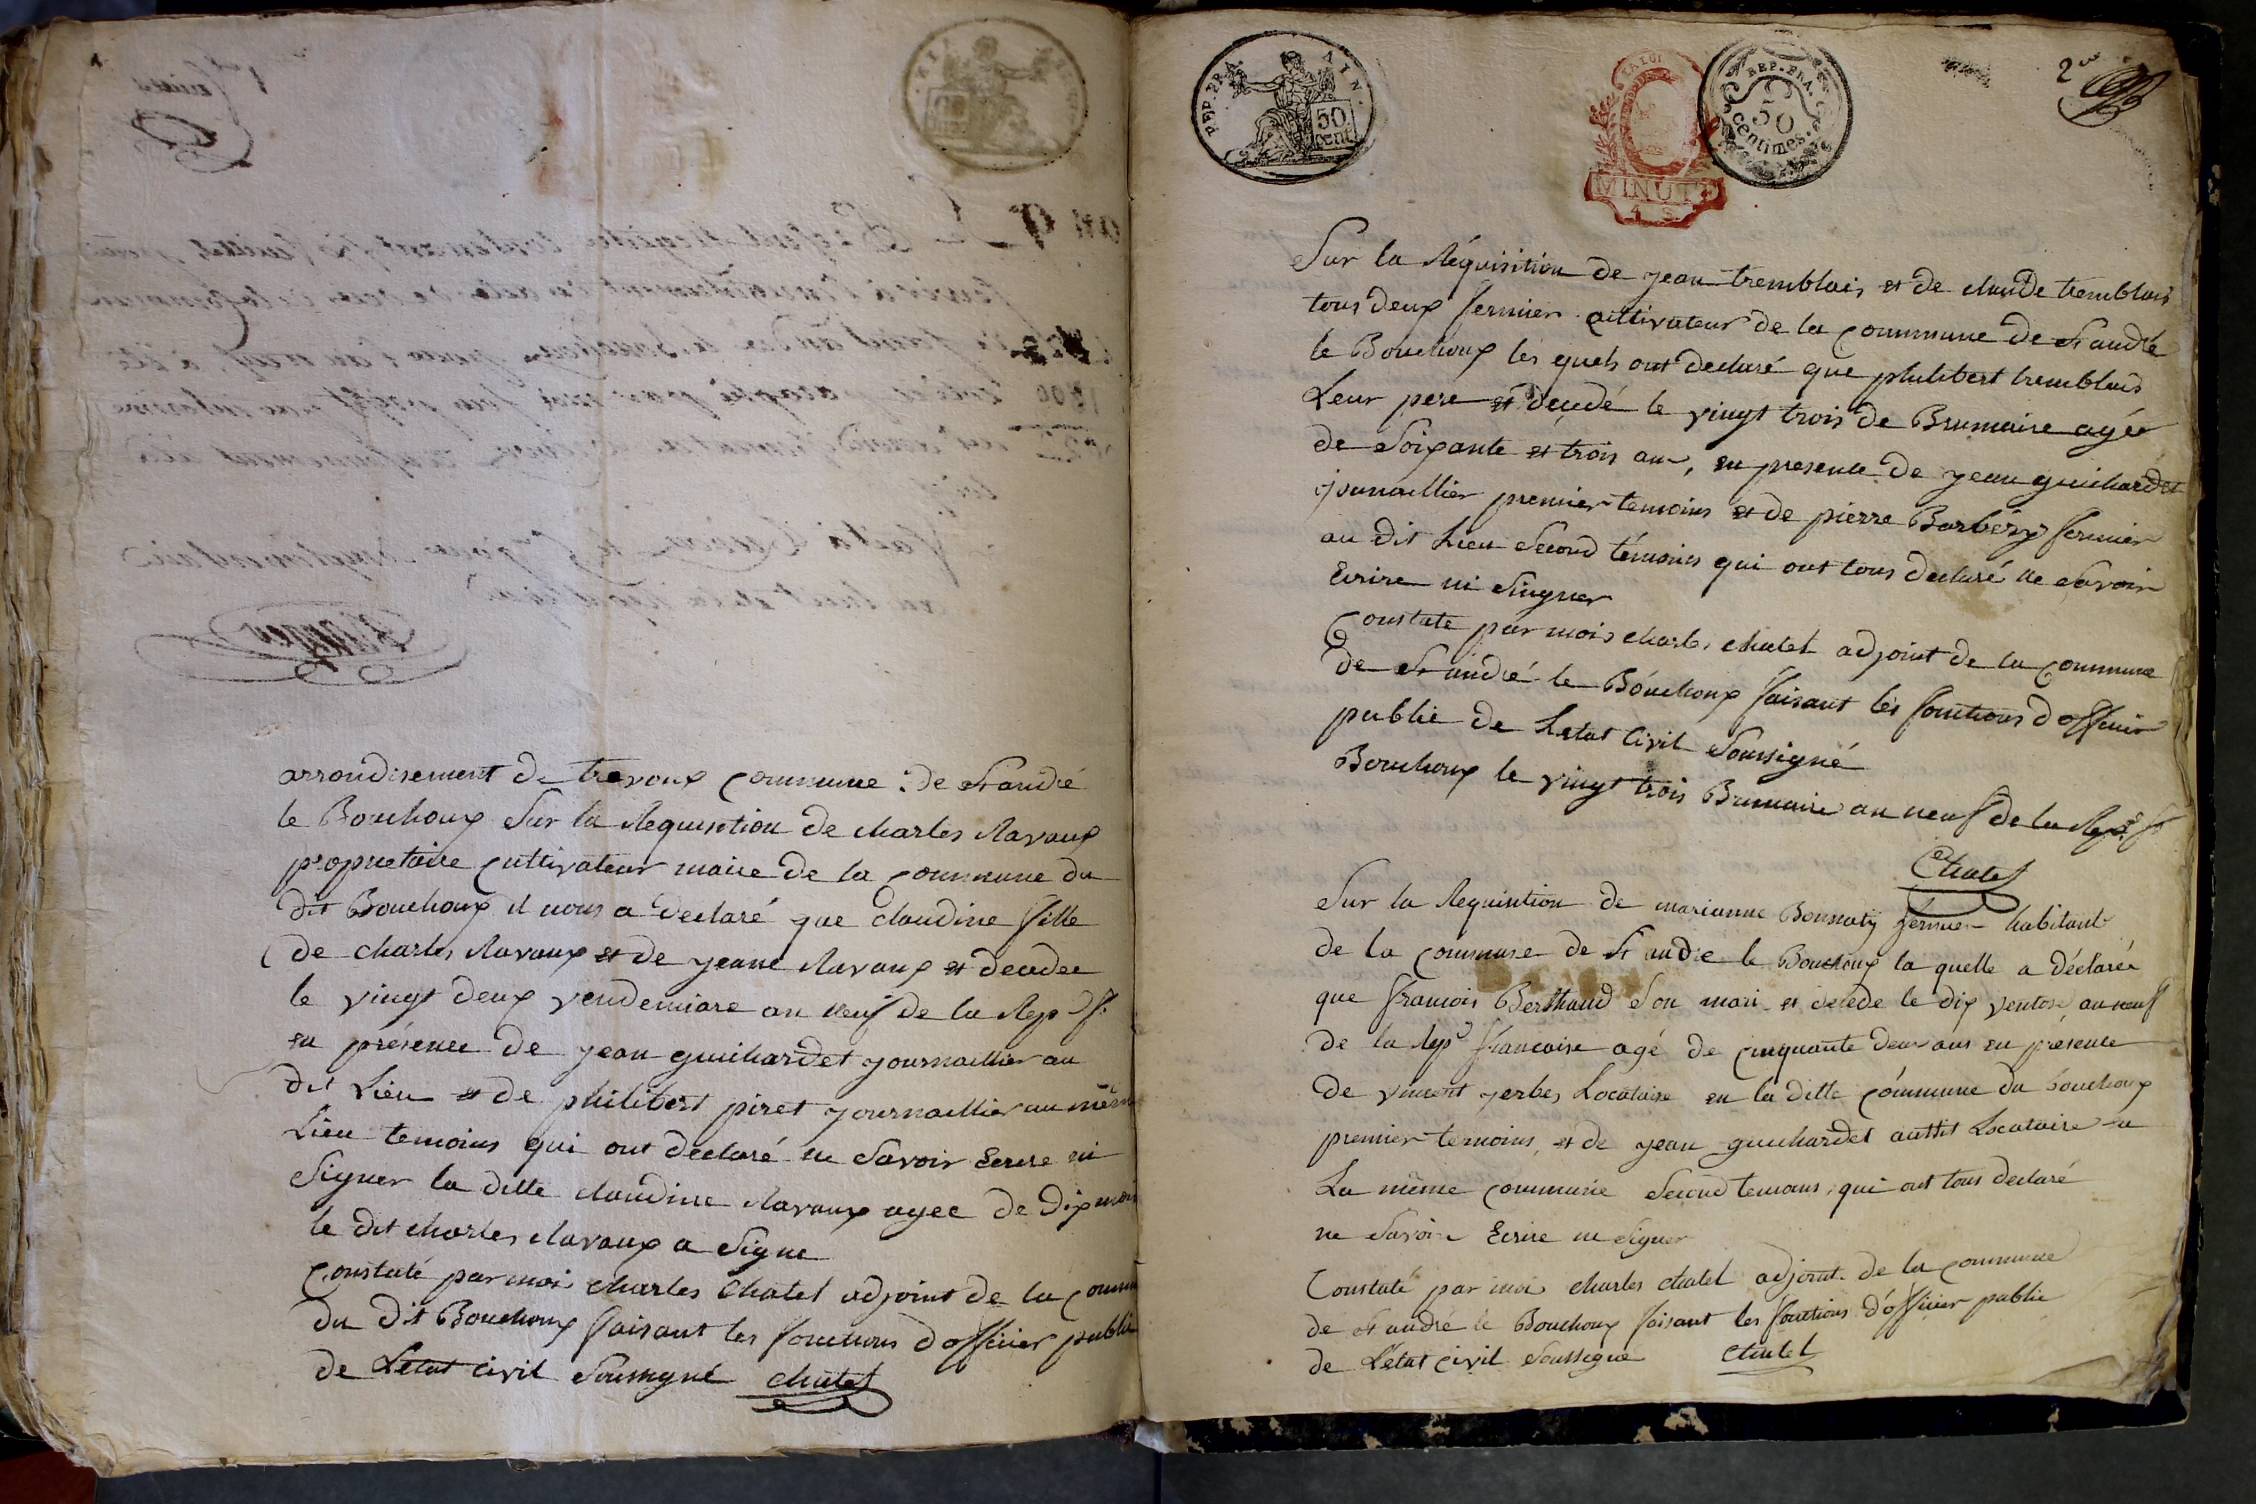 arrondisement de trevoux commune de St andré
le Bouchoux Sur la Requisition de charles Ravaux
proprietaire cultivateur maire de la commune du
dit Bouchoux il nous a declaré que claudine fille
de charles Ravaux et de jeane Ravaux et decedee
le vingt deux vendemiare an neuf de la Rep f.
en présence de jean guichardet journaillier au
dit Lieu et de philibert piret journaillier au même
Lieu temoins qui ont declaré ne Savoir Ecrire ni
Signer la ditte claudine Ravaux agee de dix mois
le dit charles Ravaux a Signe
Constaté par moi charles Chatel adjoint de la comm
du dit Bouchoux faisant les fonctions d'officier public
de Letat civil Soussigné Chatel
REP. FRA. AIN.
50 cent
LA LOI
MINUTE
REP. FRA.
50
centimes.
2me
Sur la Réquisition de jean tremblais et de claude tremblais
tous deux fermier cultivateur de la commune de St andré
le Bouchoux les quels ont declaré que philibert tremblais
Leur pere et decedé le vingt trois de Brumaire agée
de Soixante et trois an, en presence de jean guichardet
journaillier premier temoins et de pierre Barbery fermier
au dit Lieu Second témoins qui ont tous declaré ne Savoir
Ecrire ni Singner
Constate par mois charles chatel adjoint de la commune
de St andré le Bouchoux faisant les fonctions d'officier
public de Letat Civil Soussigné
Bouchoux le vingt trois Brumaire an neuf de la Rep. f
Chatel
Sur la Requisition de marianne Bonnaty fermier habitant
de la commune de St andre le Bouchoux la quelle a déclarée
que francois Berthaud Son mari et decede le dix ventose an neuf
de la Rep francaise agé de cinquante deux ans en présence
de vincent yerbes Locataire en la ditte commune du bouchoux
premier temoins, et de jean guichardet Locataire
La même commune Second temoins qui ont tous declaré
ne Savoir Ecrire ni Signer
Constaté par moi charles chatel adjoint de la commune
de St andré le Bouchoux faisant les fonctions d'officier public
de Létat civil Soussigné Chatel